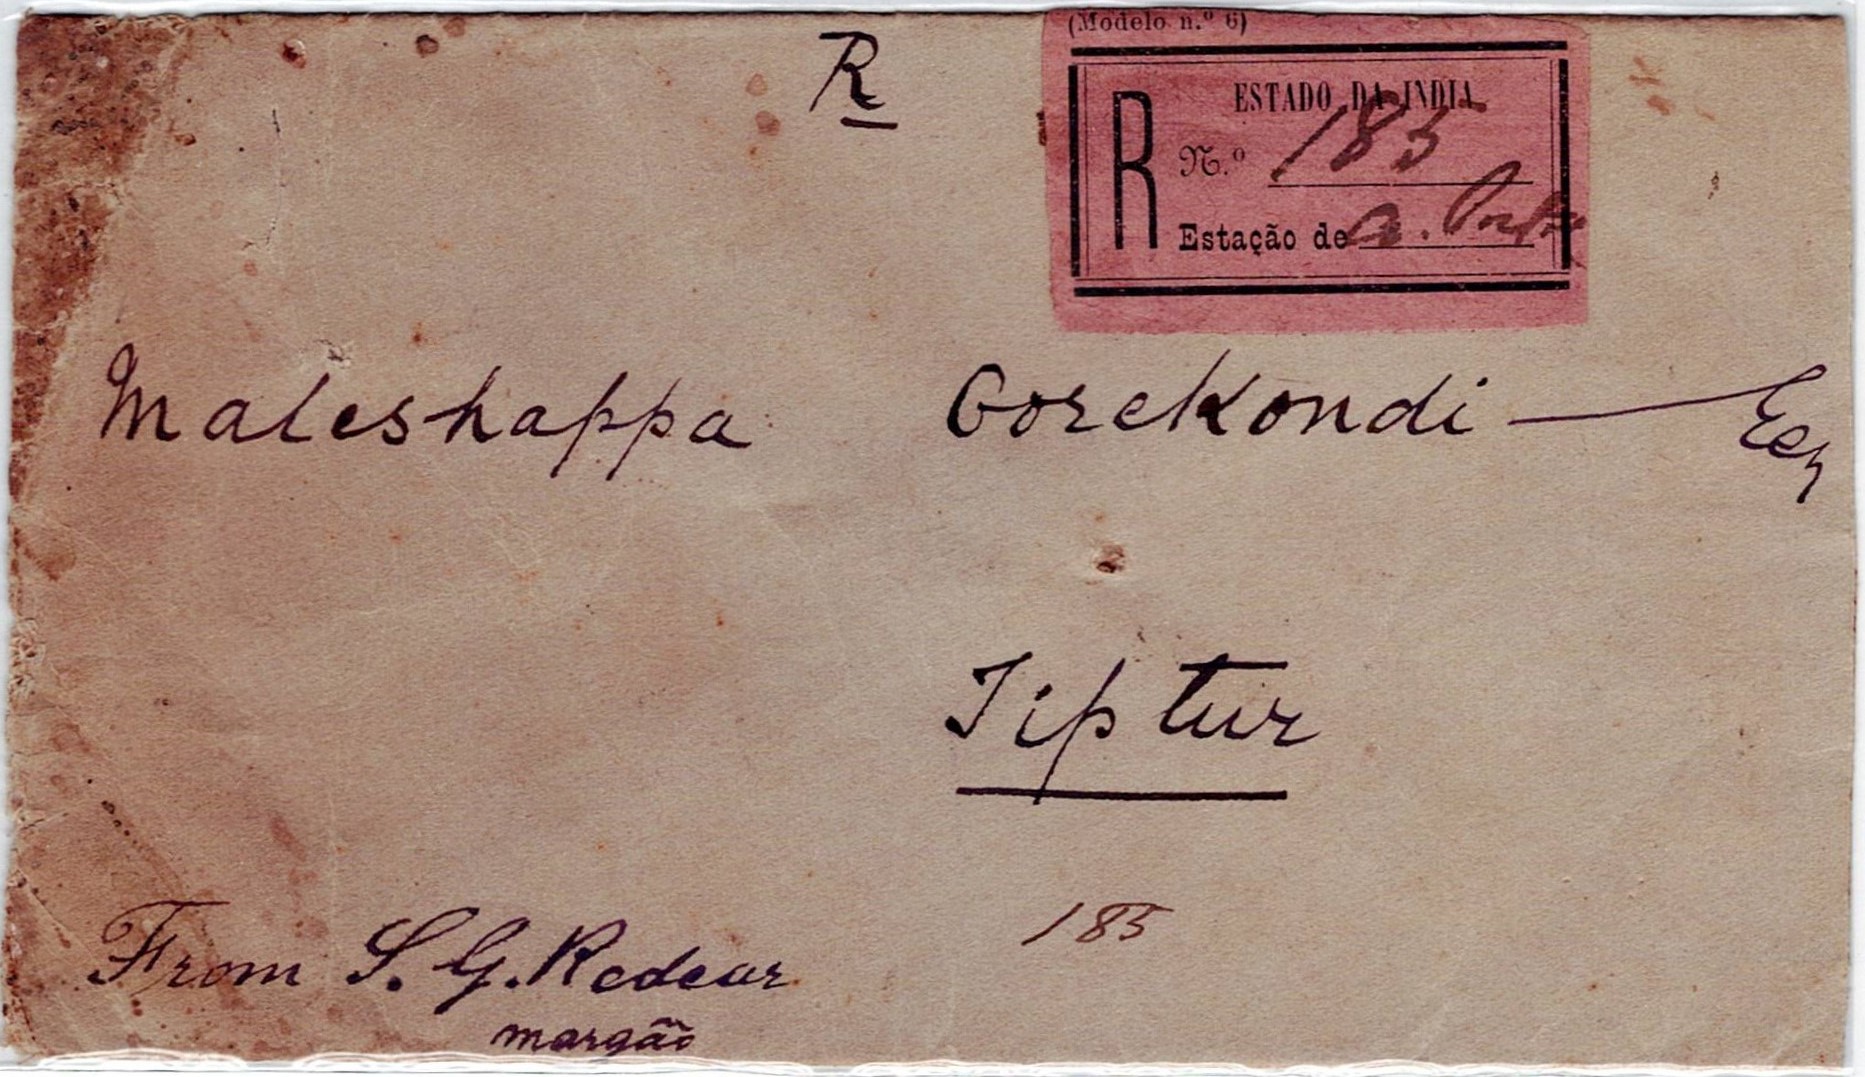 R
(Modelo n.º 6)
ESTADO DA INDIA
R
N.º 185
Estação de
Maleshappa Gorekondi — Esq
Tiptur
185
From S. G. Redcar
margão